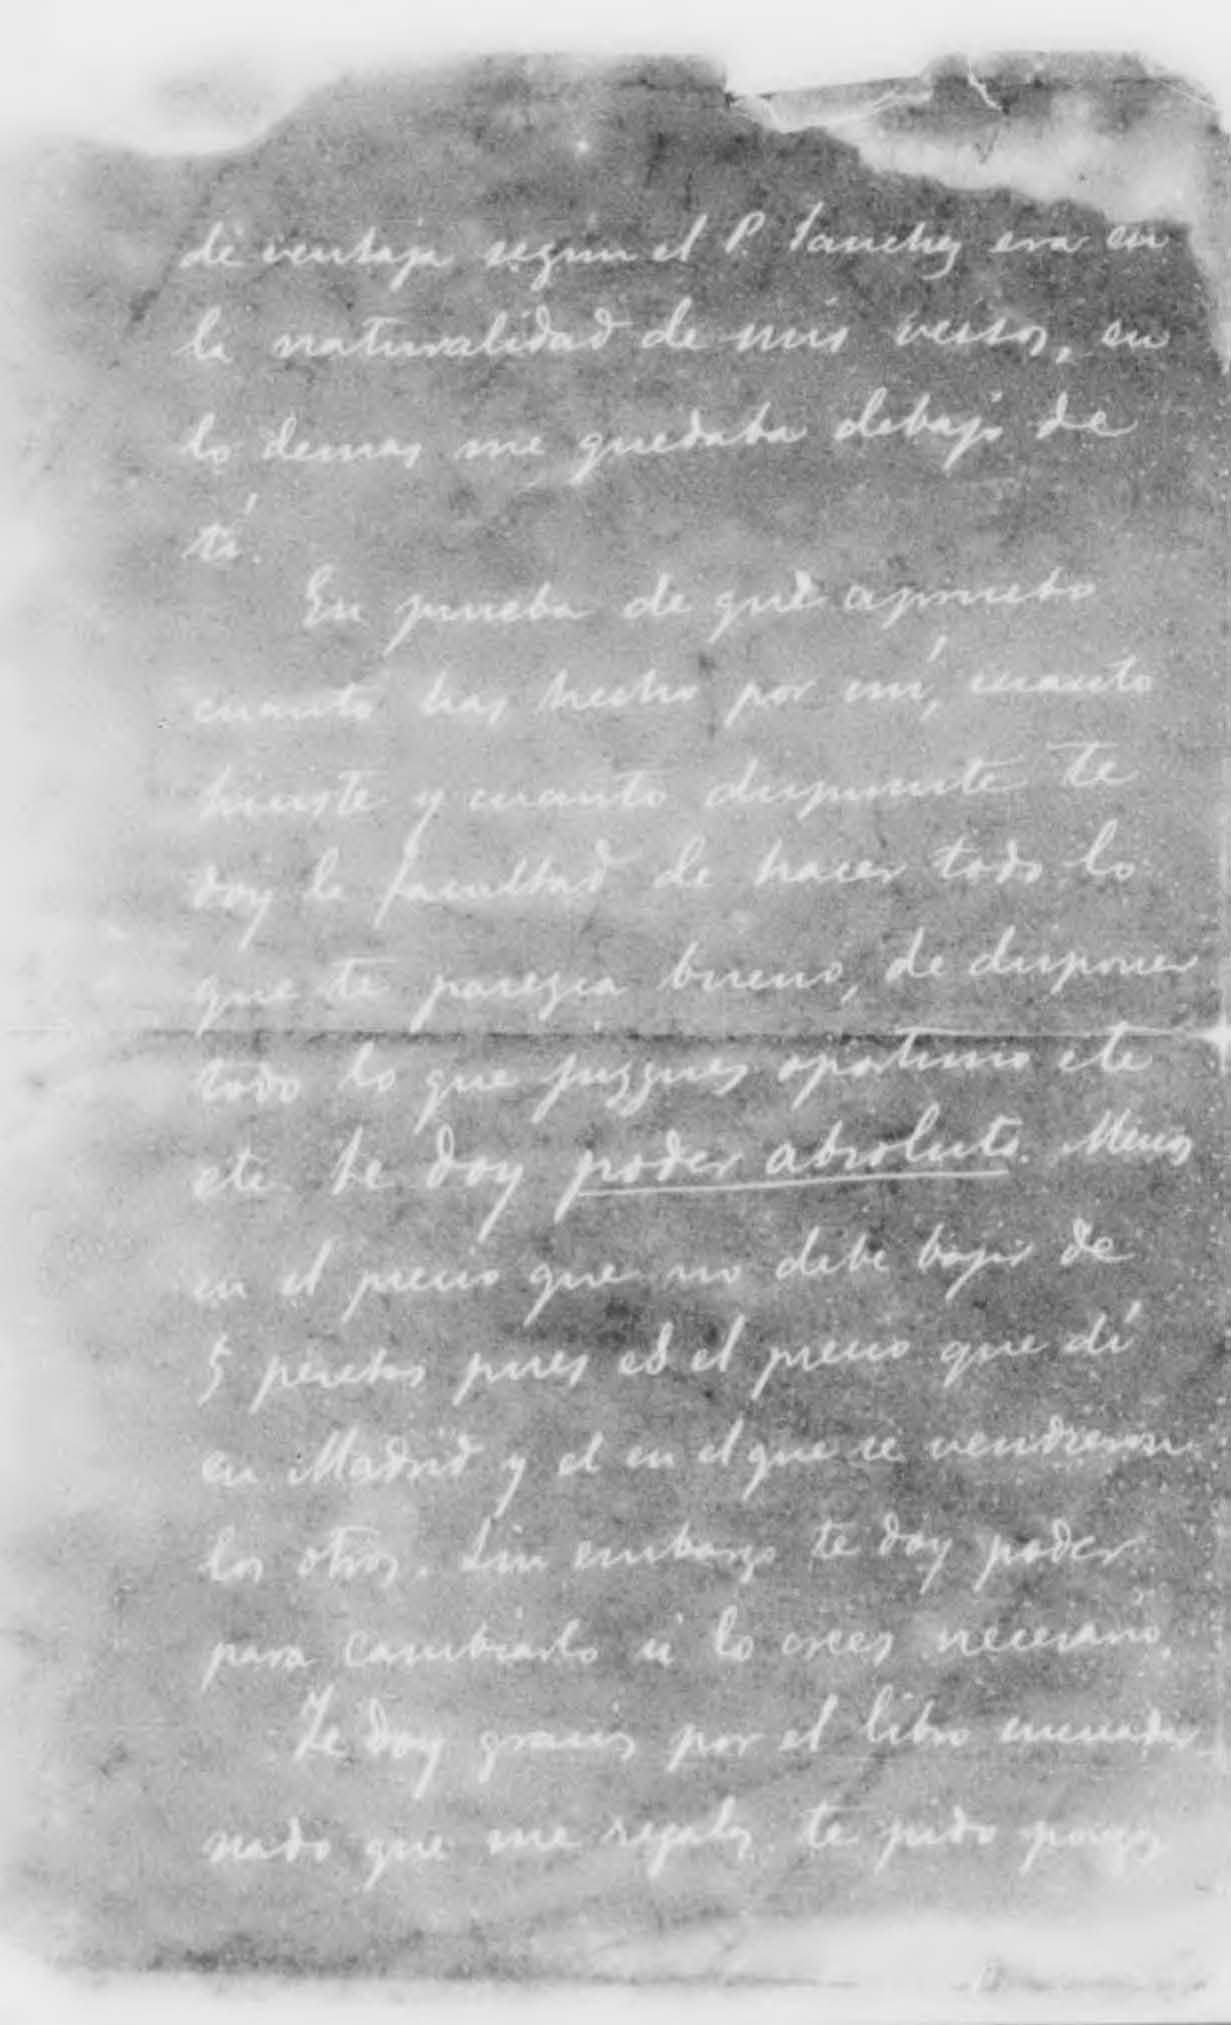 de ventaja según el P. Sanchez era en
la naturalidad de mis versos, en
lo demas me quedaba debajo de
tí.
En prueba de que apruebo
cuanto has hecho por mí, cuanto
hiciste y cuanto dispusiste te
doy la facultad de hacer todo lo
que te parezca bueno, de disponer
todo lo que juzgues oportuno etc
etc te doy poder absoluto. Menos
en el precio que no debe bajar de
5 pesetas pues es el precio que dí
en Madrid y el en el que se vendieron
los otros. Sin embargo te doy poder
para cambiarlo si lo crees necesario.
Te doy gracias por el libro encuader
nado que me regalas te pido pongas